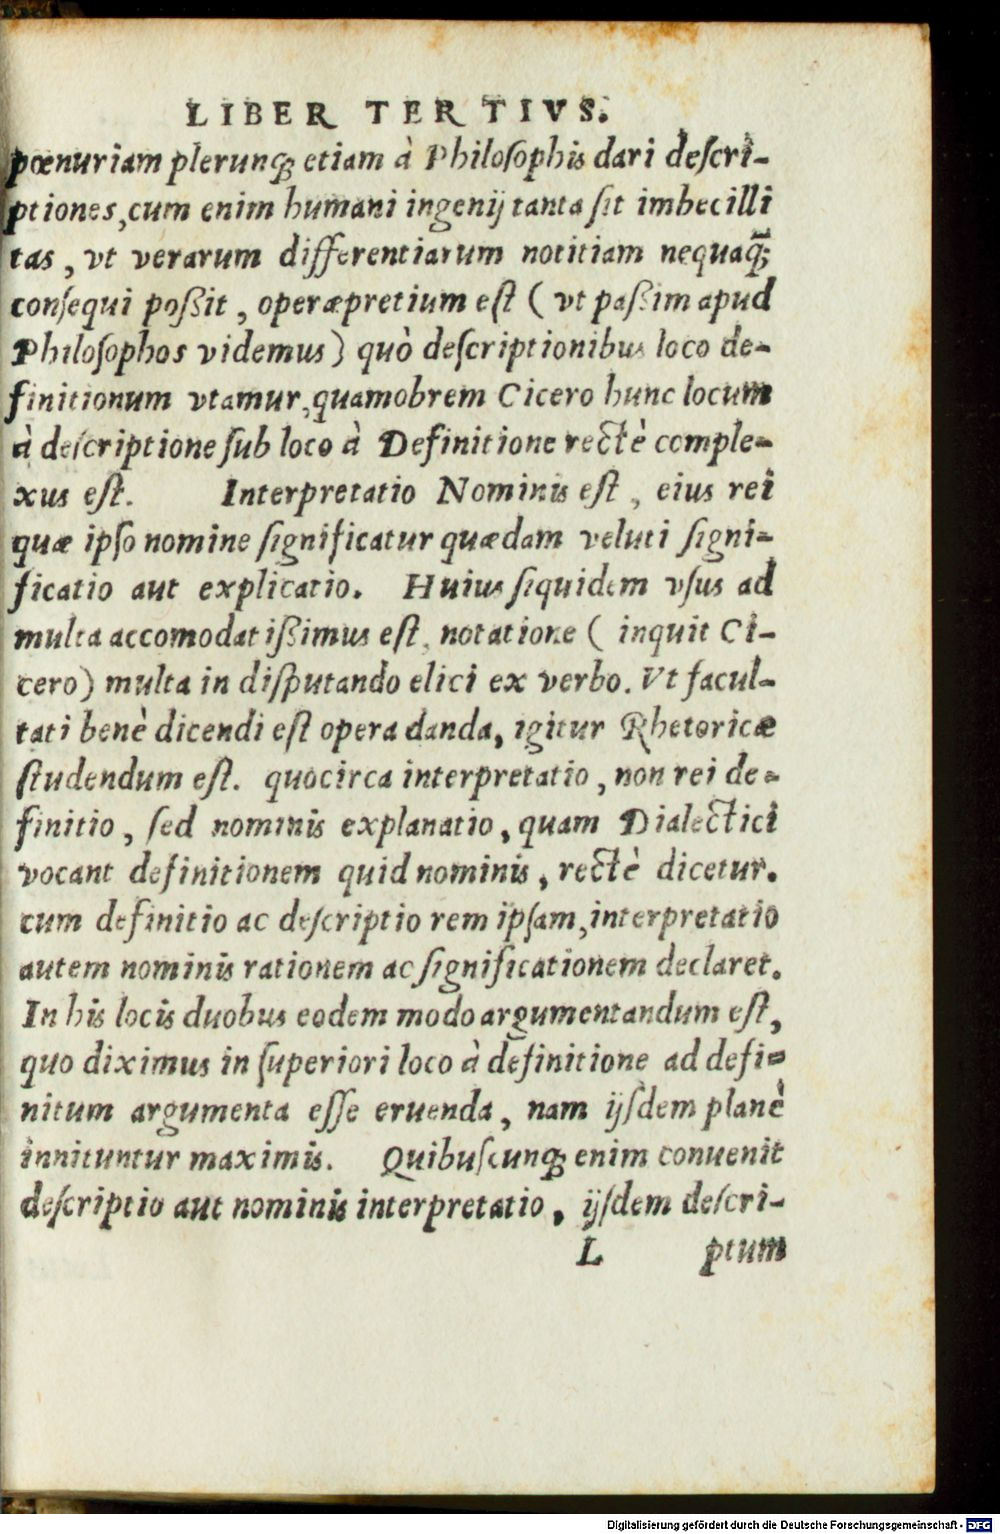 LIBER TERTIVS.
pœnuriam plerunqꝫ etiam à Philosophis dari descri-
ptiones, cum enim humani ingenij tanta sit imbecilli
tas, vt verarum differentiarum notitiam nequaq̃ꝫ
consequi poßit, operæpretium est ( vt paßim apud
Philosophos videmus) quò descriptionibus loco de-
finitionum vtamur, quamobrem Cicero hunc locum
à descriptione sub loco à Definitione rectè comple-
xus est. Interpretatio Nominis est, eius rei
quæ ipso nomine significatur quædam veluti signi-
ficatio aut explicatio. Huius siquidem vsus ad
multa accomodatißimus est, notatione ( inquit Ci-
cero) multa in disputando elici ex verbo. Vt facul-
tati benè dicendi est opera danda, igitur Rhetoricæ
studendum est. quocirca interpretatio, non rei de-
finitio, sed nominis explanatio, quam Dialectici
vocant definitionem quid nominis, rectè dicetur.
cum definitio ac descriptio rem ipsam, interpretatio
autem nominis rationem ac significationem declaret.
In his locis duobus eodem modo argumentandum est,
quo diximus in superiori loco à definitione ad defi-
nitum argumenta esse eruenda, nam ijsdem planè
innituntur maximis. Quibuscunqꝫ enim conuenit
descriptio aut nominis interpretatio, ijsdem descri-
L ptum
Digitalisierung gefördert durch die Deutsche Forschungsgemeinschaft - DFG